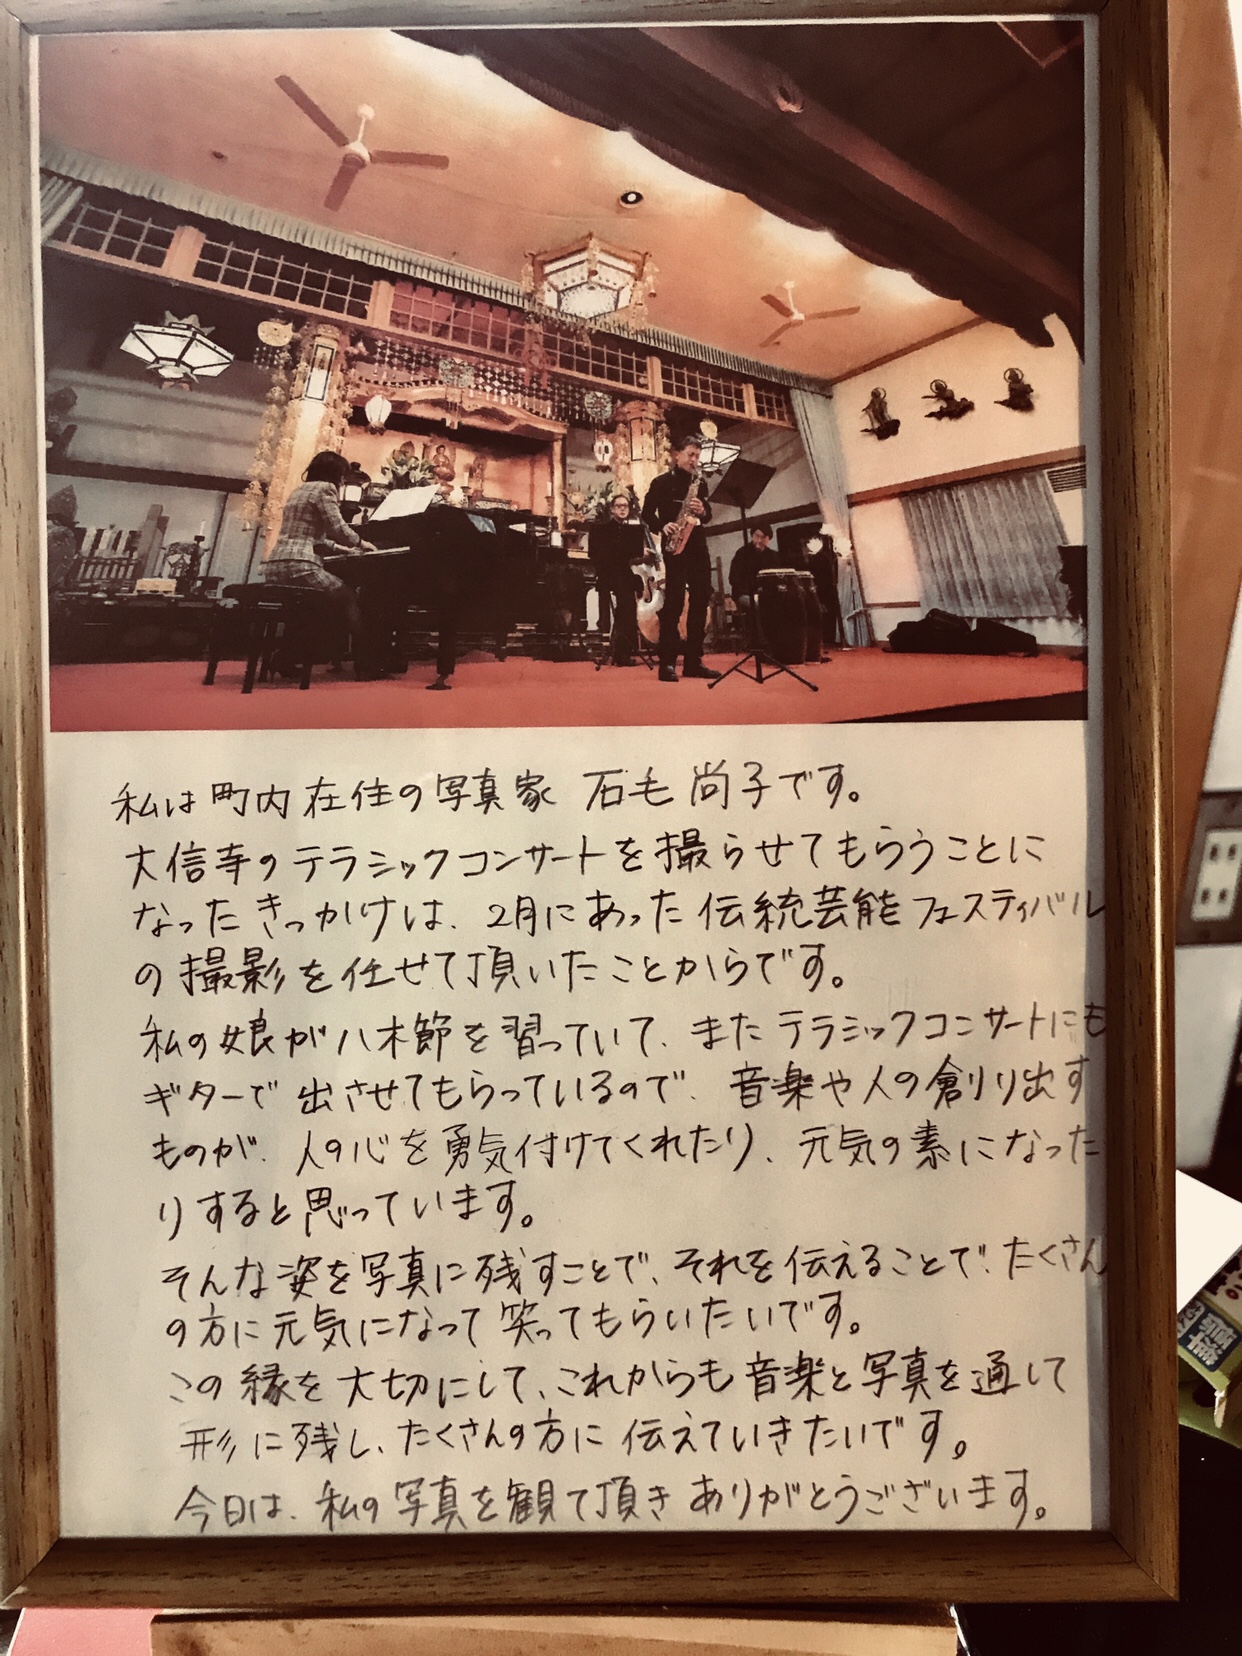 私は町内在住の写真家 石毛尚子です。
大信寺のテラシックコンサートを撮らせてもらうことに
なったきっかけは、2月にあった伝統芸能フェスティバル
の撮影を任せて頂いたことからです。
私の娘が八木節を習っていて、またテラシックコンサートにも
ギターで出させてもらっているので、音楽や人の創り出す
ものが、人の心を勇気付けてくれたり、元気の素になった
りすると思っています。
そんな姿を写真に残すことで、それを伝えることで、たくさん
の方に元気になって笑ってもらいたいです。
この縁を大切にして、これからも音楽と写真を通して
形に残し、たくさんの方に伝えていきたいです。
今日は、私の写真を観て頂きありがとうございます。